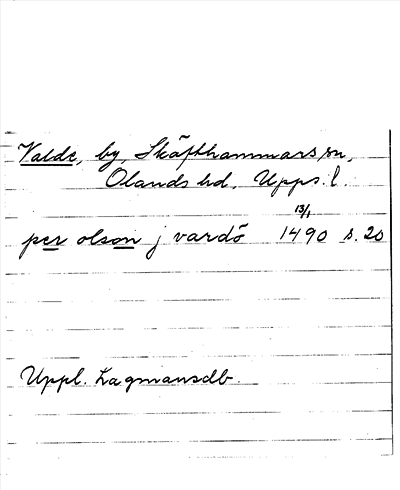 Valde, by, Skäfthammars sn,
Olands hd. Upps. l.
13/1
per olson j vardö 1490 s. 20
Uppl. Lagmansdb.